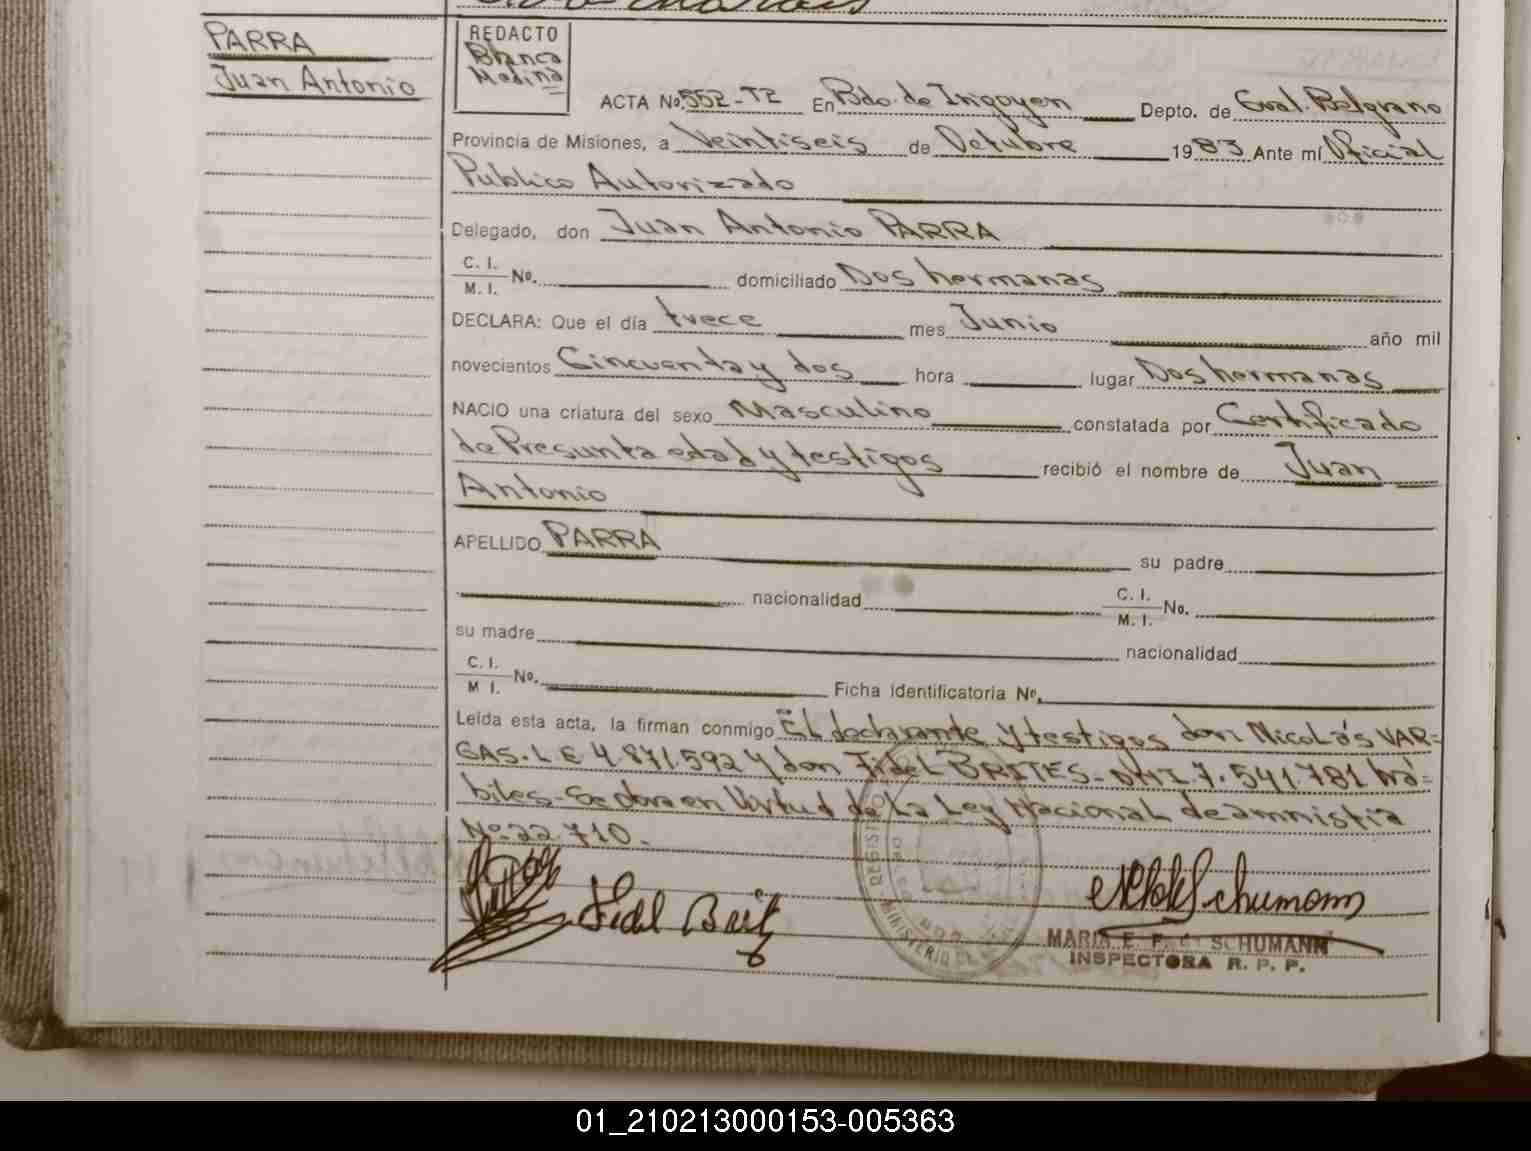 PARRA
Juan Antonio
REDACTO
Blanca
Medina
ACTA No. 552-T2 En Bdo. de Irigoyen Depto. de Gral. Belgrano
Provincia de Misiones, a Veintiseis de Octubre 1983 Ante mí Oficial
Publico Autorizado
Delegado, don Juan Antonio PARRA
C. I.
M. I. No. domiciliado Dos hermanas
DECLARA: Que el día trece mes Junio año mil
novecientos Cincuenta y dos hora lugar Dos hermanas
NACIO una criatura del sexo Masculino constatada por Certificado
de Presunta edad y testigos recibió el nombre de Juan
Antonio
APELLIDO PARRA su padre
nacionalidad C. I.
M. I. No.
su madre nacionalidad
C. I.
M I. No. Ficha Identificatoria No.
Leída esta acta, la firman conmigo El declarante y testigos don Nicolás VAR=
GAS. L E 4.871.592 y don Fidel BRITES- DNI. 7.541.781 há=
biles- Se obra en Virtud de La Ley Nacional de amnistia
Nº 22.710.
Fidel Brit
Schumann
MARIA E. F. SCHUMANN
INSPECTORA R. P. P.
REGIST
MINISTERIO
01_210213000153-005363